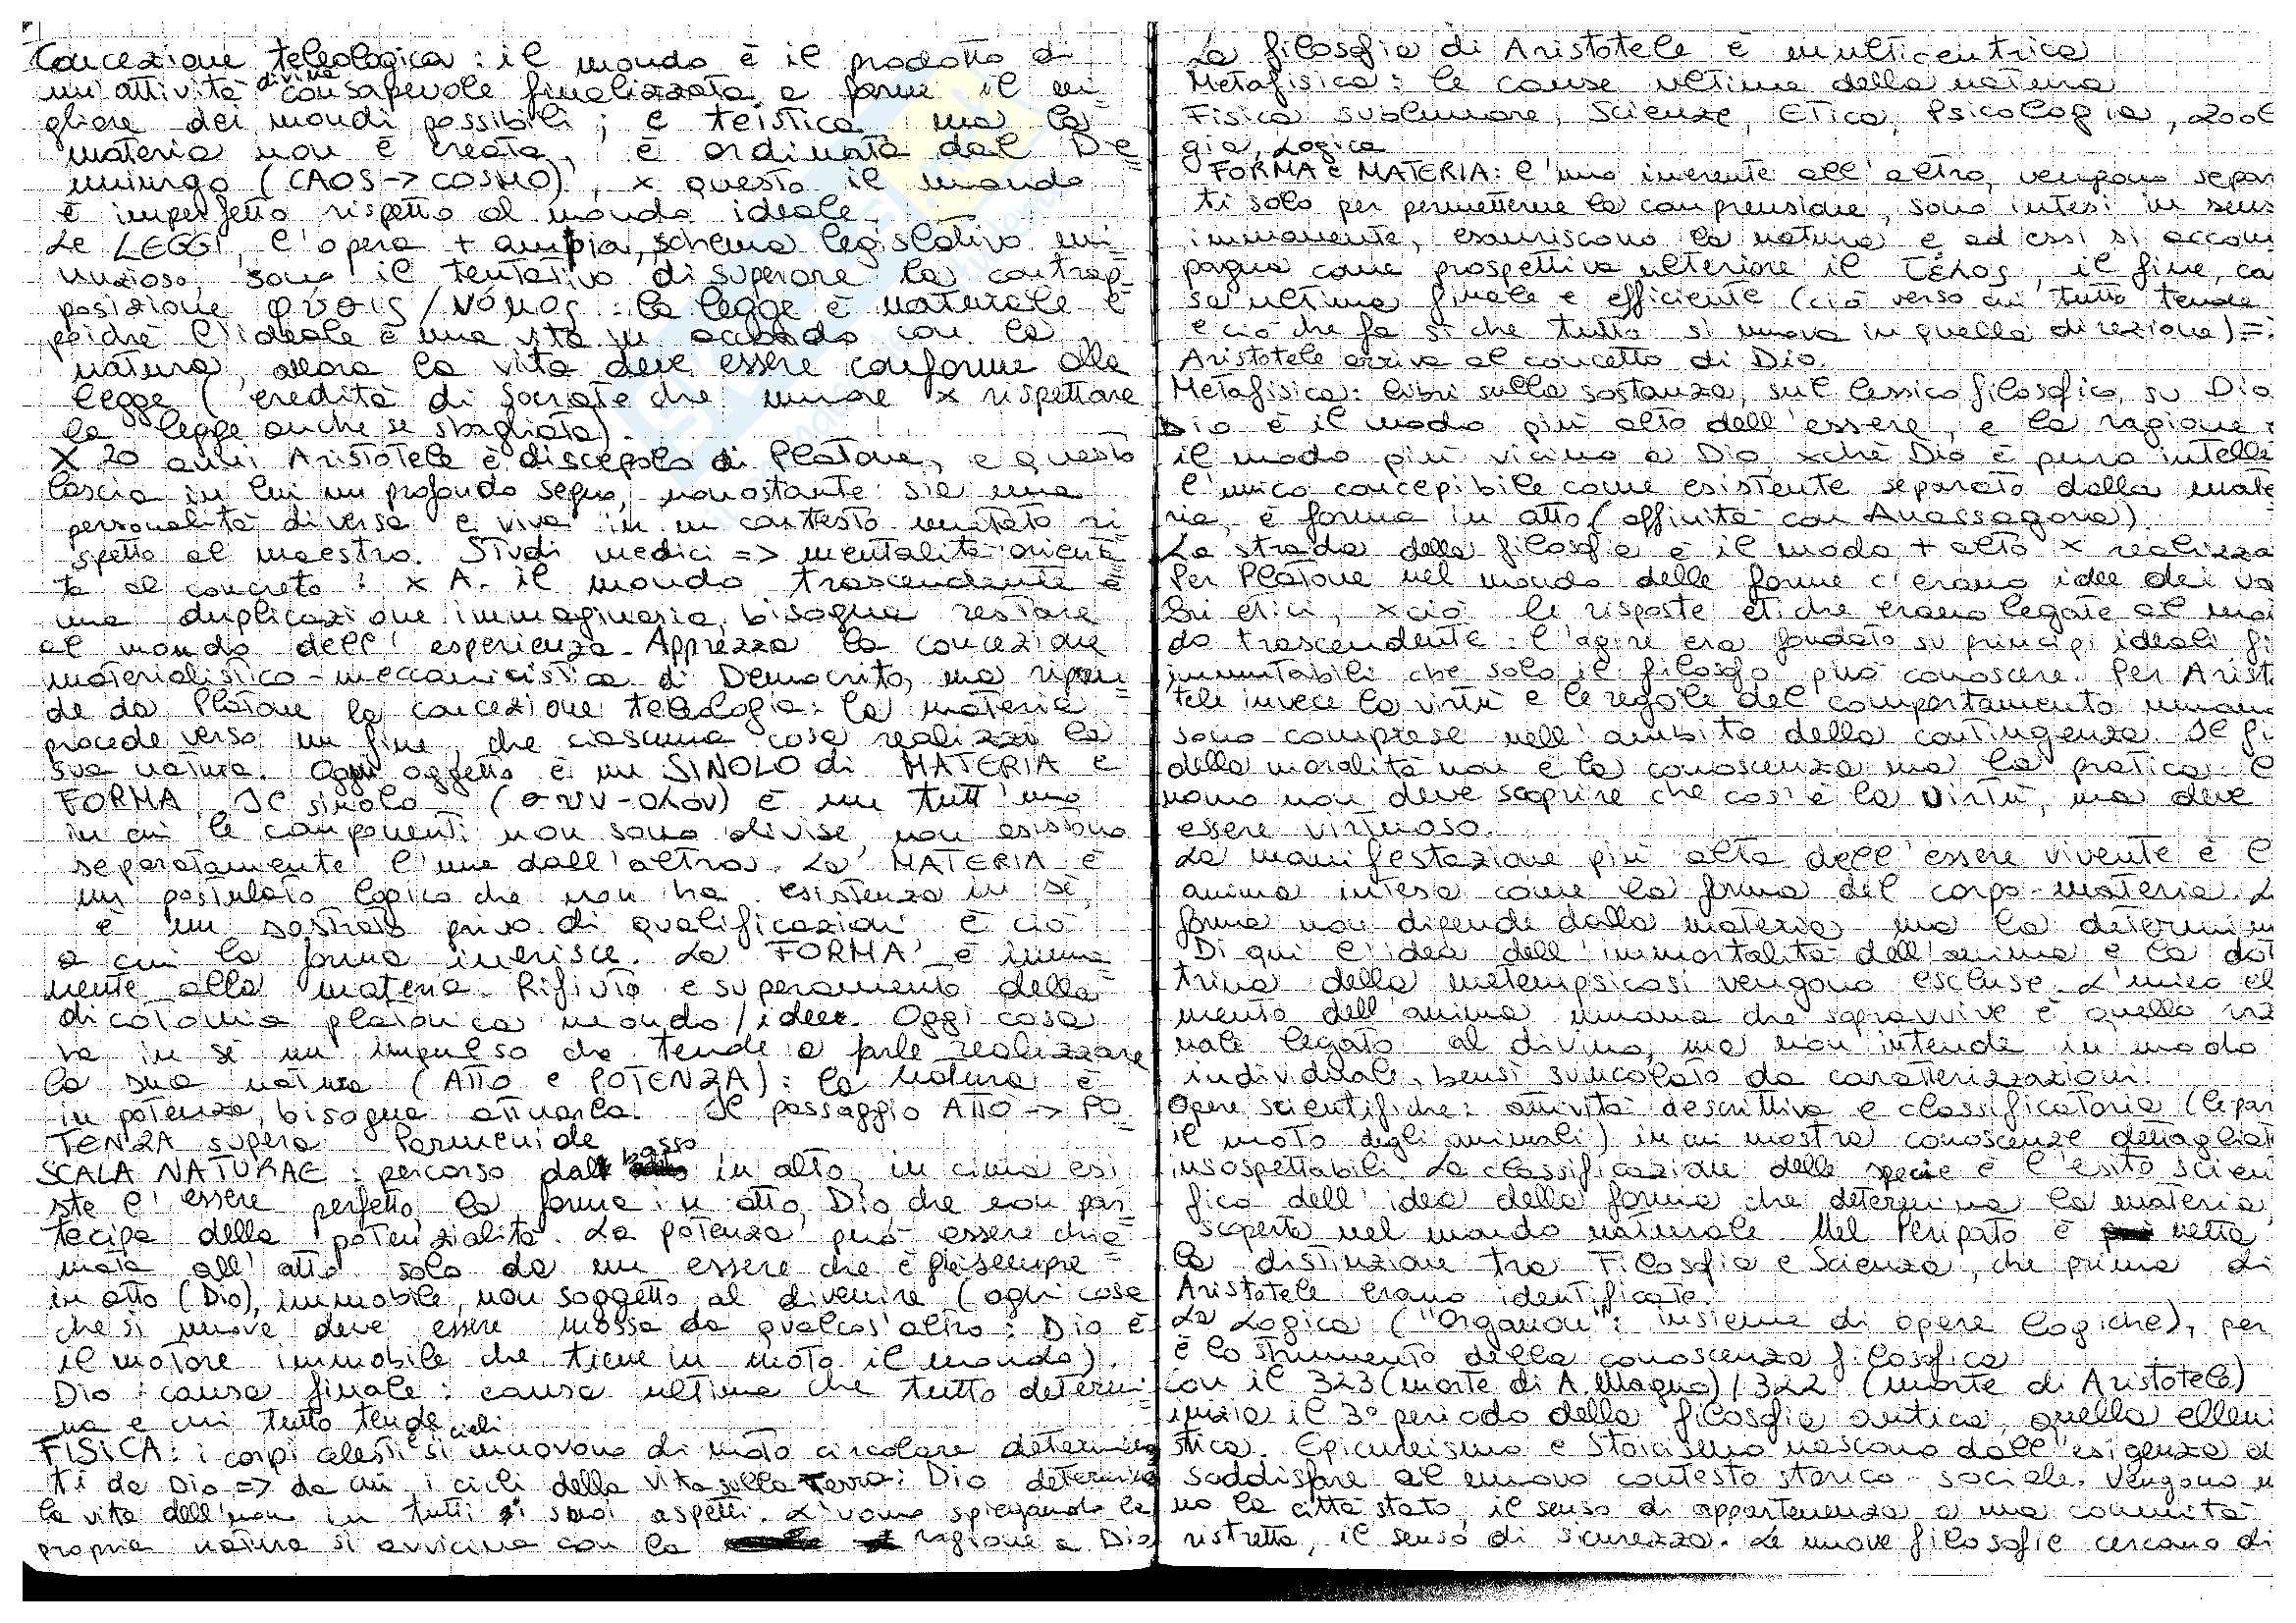 Concezione teleologica: il mondo è il prodotto di
un'attività divina consapevole finalizzata a farne il mi-
gliore dei mondi possibili; è teistica ma la
materia non è creata, è ordinata dal De-
miurgo (CAOS -> COSMO), x questo il mondo
è imperfetto rispetto al mondo ideale.
Le LEGGI, l'opera + ampia, schema legislativo mi-
nuzioso, sono il tentativo di superare la contrap-
posizione φύσις/νόμος: la legge è naturale e
poiché l'ideale è una vita in accordo con la
natura, allora la vita deve essere conforme alla
legge (eredità di Socrate che muore x rispettare
la legge anche se sbagliata).
X 20 anni Aristotele è discepolo di Platone, e questo
lascia in lui un profondo segno, nonostante sia una
personalità diversa e viva in un contesto mutato ri-
spetto al maestro. Studi medici => mentalità orienta-
ta al concreto: x A. il mondo trascendente è
una duplicazione immaginaria, bisogna restare
al mondo dell'esperienza. Apprezza la concezione
materialistico-meccanicistica di Democrito, ma ripren-
de da Platone la concezione teleologia: la materia
procede verso un fine, che ciascuna cosa realizzi la
sua natura. Ogni oggetto è un SINOLO di MATERIA e
FORMA. Il sinolo (συν-ολον) è un tutt'uno
in cui le componenti non sono divise, non esistono
separatamente l'una dall'altra. La MATERIA è
un postulato logico che non ha esistenza in sé,
è un sostrato privo di qualificazioni è ciò
a cui la forma inerisce. La FORMA è imma-
nente alla materia. Rifiuto e superamento della
dicotomia platonica mondo/idee. Oggi cosa
ha in sé un impulso che tende a farle realizzare
la sua natura (ATTO e POTENZA): la natura è
in potenza, bisogna attuarla. Il passaggio ATTO -> PO-
TENZA supera Parmenide
SCALA NATURAE: percorso dal basso in alto, in cima esi-
ste l'essere perfetto, la forma in atto, Dio che non par-
tecipa della potenzialità. La potenza può essere chia-
mata all'atto solo da un essere che è già sempre
in atto (Dio), immobile, non soggetto al divenire (ogni cosa
che si muove deve essere mossa da qualcos'altro: Dio è
il motore immobile che tiene in moto il mondo).
Dio: causa finale: causa ultima che tutto determi-
na e cui tutto tende
FISICA: i corpi celesti e i cieli si muovono di moto circolare determina-
ti da Dio => da cui i cicli della vita sulla Terra: Dio determina
la vita dell'uomo in tutti i suoi aspetti. L'uomo spiegando la
propria natura si avvicina con la ragione a Dio
La filosofia di Aristotele è multicentrica
Metafisica: le cause ultime della natura
Fisica sublunare, Scienze, Etica, Psicologia, zool
gia, Logica
FORMA e MATERIA: l'uno inerente all'altro, vengono separ
ti solo per permetterne la comprensione, sono intesi in sens
immanente, esauriscono la natura e ad essi si accom
pagna come prospettiva ulteriore il τέλος, il fine, ca
sa ultima finale e efficiente (ciò verso cui tutto tende
e ciò che fa sì che tutto si muova in quella direzione) =>
Aristotele arriva al concetto di Dio.
Metafisica: libri sulla sostanza, sul lessico filosofico, su Dio
Dio è il modo più alto dell'essere, e la ragione
il modo più vicino a Dio, xchè Dio è puro intelle
l'unico concepibile come esistente separato dalla mate
ria, è forma in atto (affinità con Anassagora).
La strada della filosofia è il modo + alto x realizza
Per Platone nel mondo delle forme c'erano idee dei va
lori etici, xciò le risposte etiche erano legate al mon
do trascendente: l'agire era fondato su principi ideali fi
immutabili che solo il filosofo può conoscere. Per Arist
tele invece la virtù e le regole del comportamento uman
sono comprese nell'ambito della contingenza. Il fi
della moralità non è la conoscenza ma la pratica: l
uomo non deve scoprire che cos'è la virtù, ma deve
essere virtuoso.
La manifestazione più alta dell'essere vivente è l
anima intesa come la forma del corpo-materia. L
forma non dipende dalla materia ma la determin
Di qui l'idea dell'immortalità dell'anima e la dot
trina della metempsicosi vengono escluse. L'unico el
mento dell'anima umana che sopravvive è quello raz
nale legato al divino, ma non intende in modo
individuale, bensì svincolato da caratterizzazioni.
Opere scientifiche: attività descrittiva e classificatoria (le par
il moto degli animali) in cui mostra conoscenze dettagliat
insospettabili. La classificazione delle specie è l'esito scien
fico dell'idea della forma che determina la materia,
scoperta nel mondo naturale. Nel Peripato è netta
la distinzione tra Filosofia e Scienza, che prima di
Aristotele erano identificate.
La Logica ("Organon": insieme di opere logiche), per
è lo strumento della conoscenza filosofica
Con il 323 (morte di A. Magno) / 322 (morte di Aristotele)
inizia il 3° periodo della filosofia antica, quella elleni
stica. Epicureismo e Stoicismo nascono dall'esigenza d
soddisfare al nuovo contesto storico-sociale. Vengono m
no la città stato, il senso di appartenenza a una comunità
ristretta, il senso di sicurezza. Le nuove filosofie cercano di